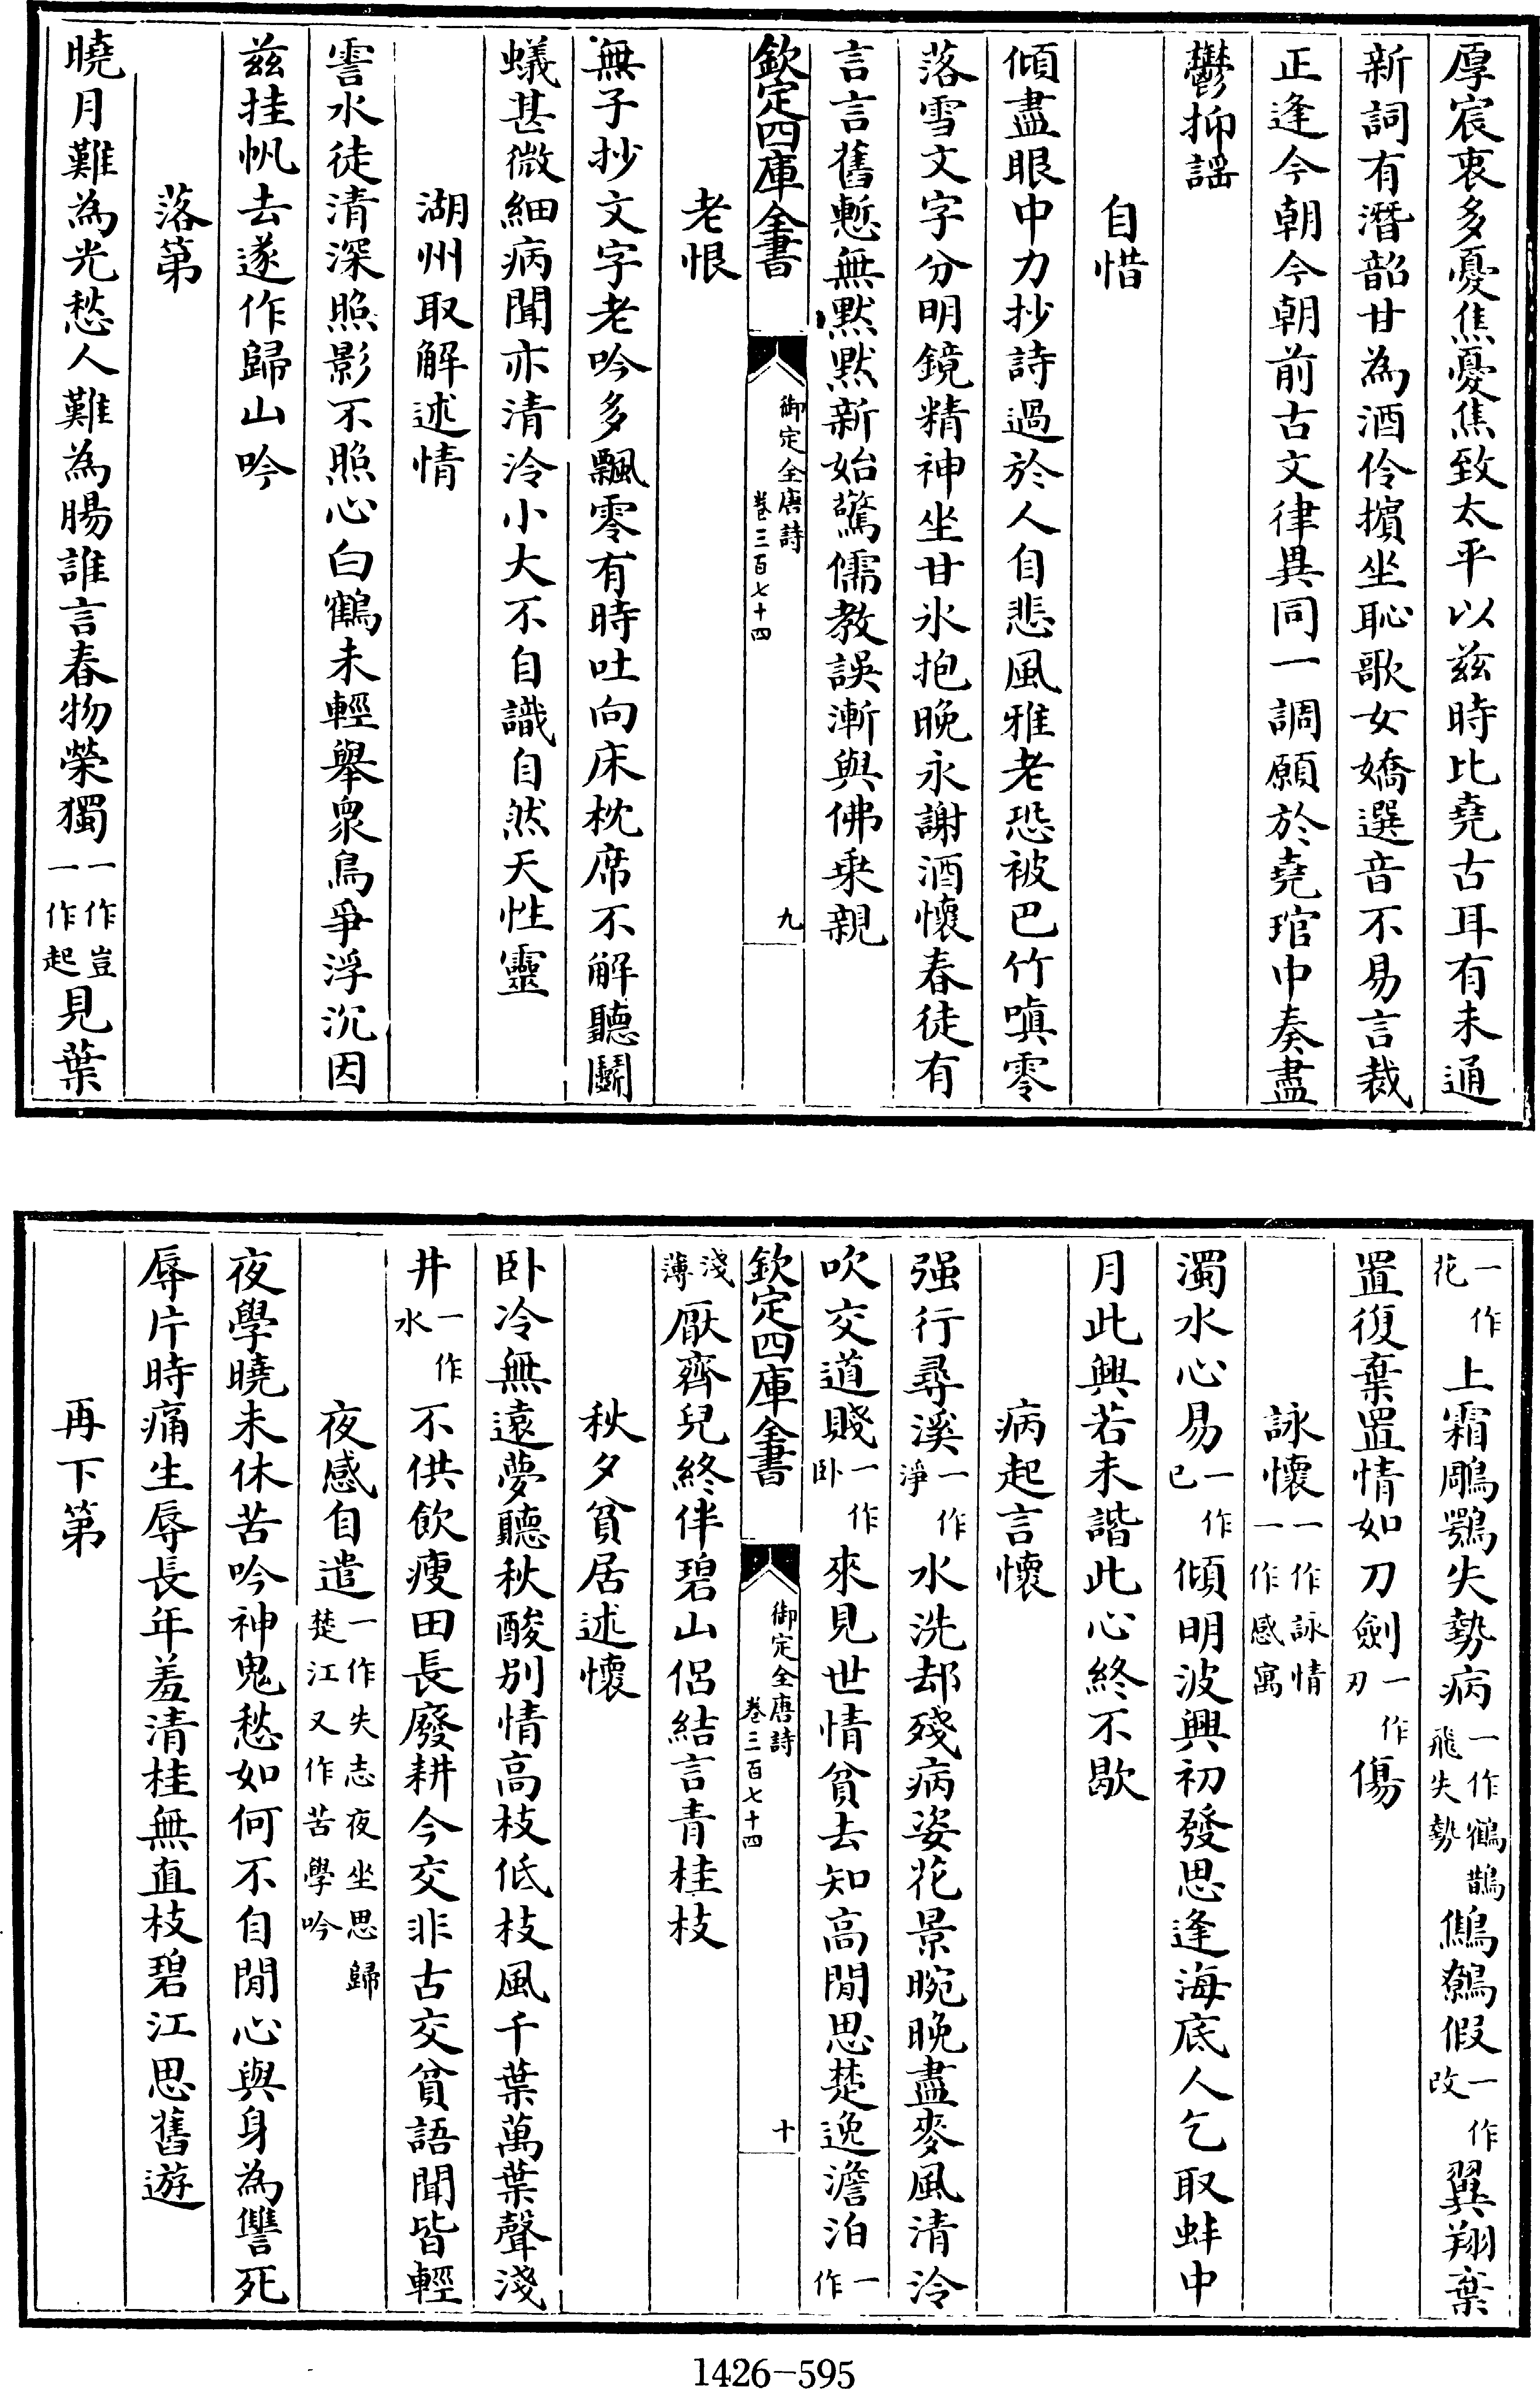 厚宸衷多憂焦憂焦致太平以兹時比堯古耳有未通
新詞有潛韶甘為酒伶擯坐恥歌女嬌選音不易言裁
正逢今朝今朝前古文律異同一調願於堯琯中奏盡
鬱抑謡
自惜
傾盡眼中力抄詩過於人自悲風雅老恐被巴竹嗔零
落雪文字分明鏡精神坐甘氷抱晚永謝酒懷春徒有
言言舊慙無嘿默新始驚儒教誤漸與佛乗親
欽定四庫全書
御定全唐詩
卷三百七十四
九
老恨
無子抄文字老吟多飄零有時吐向床枕席不解聽鬭
蟻甚微細病聞亦清泠小大不自識自然天性靈
湖州取解述情
霅水徒清深照影不照心白鶴未輕舉衆鳥爭浮沉因
兹挂帆去遂作歸山吟
落第
曉月難為光愁人難為腸誰言春物榮獨一作豈一作起見葉
一作花上霜鵰鶚失勢病一作鶴鵲飛失勢鷦鷯假一作改翼翔棄
置復棄置情如刀劍一作刃傷
詠懷一作詠情一作感寓
濁水心易一作已傾明波興初發思逢海底人乞取蚌中
月此興若未諧此心終不歇
病起言懷
强行尋溪一作淨水洗却殘病姿花景晼晚盡麥風清泠
吹交道賤一作卧來見世情貧去知高閒思楚逸澹泊一作
欽定四庫全書
御定全唐詩
卷三百七十四
十
淺薄厭齊兒終伴碧山侶結言青桂枝
秋夕貧居述懷
卧冷無遠夢聽秋酸别情高枝低枝風千葉萬葉聲淺
井一作水不供飲瘦田長廢耕今交非古交貧語聞皆輕
夜感自遣一作失志夜坐思歸楚江又作苦學吟
夜學曉未休苦吟神鬼愁如何不自閒心與身為讐死
辱片時痛生辱長年羞清桂無直枝碧江思舊遊
再下第
1426-595